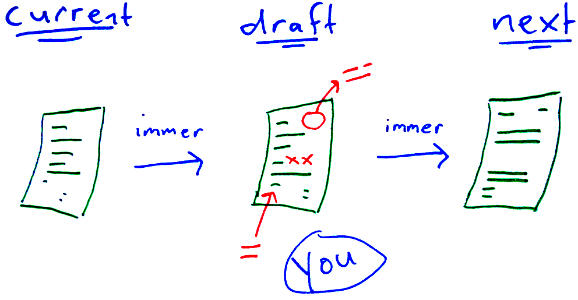 current draft next
immer immer
xx
you